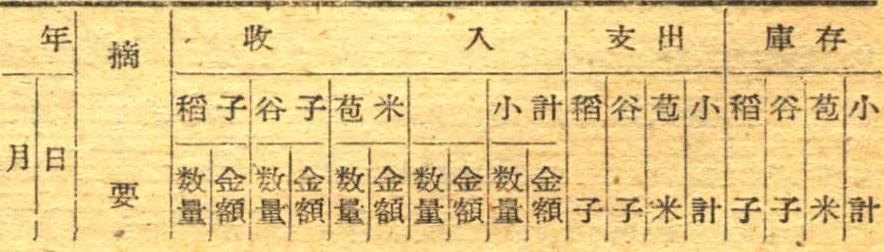 年 摘要 收入 支出 庫存
月 日 稻子 谷子 苞米 小計 稻子 谷子 苞米 小計 稻子 谷子 苞米 小計
数量 金額 数量 金額 数量 金額 数量 金額 数量 金額